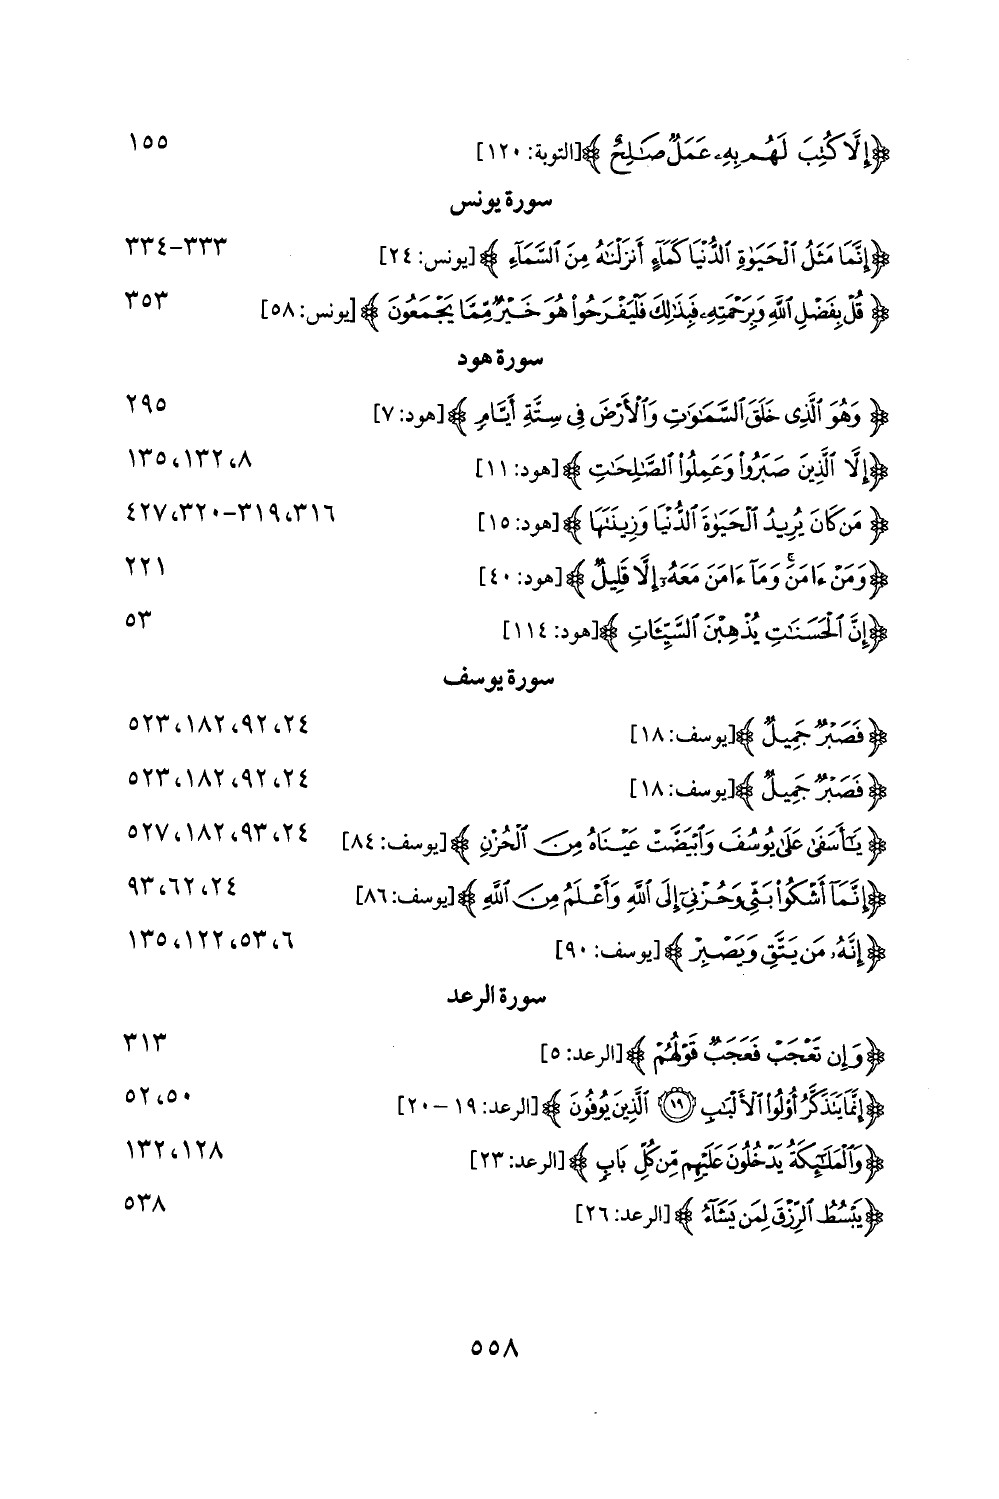 ﴿إِلَّا كُتِبَ لَهُم بِهِۦ عَمَلٌ صَـٰلِحٌ﴾ [التوبة: ١٢٠] ١٥٥
سورة يونس
﴿إِنَّمَا مَثَلُ ٱلْحَيَوٰةِ ٱلدُّنْيَا كَمَآءٍ أَنزَلْنَـٰهُ مِنَ ٱلسَّمَآءِ﴾ [يونس: ٢٤] ٣٣٣-٣٣٤
﴿قُلْ بِفَضْلِ ٱللَّهِ وَبِرَحْمَتِهِۦ فَبِذَٰلِكَ فَلْيَفْرَحُوا۟ هُوَ خَيْرٌ مِّمَّا يَجْمَعُونَ﴾ [يونس: ٥٨] ٣٥٣
سورة هود
﴿وَهُوَ ٱلَّذِى خَلَقَ ٱلسَّمَـٰوَٰتِ وَٱلْأَرْضَ فِى سِتَّةِ أَيَّامٍ﴾ [هود: ٧] ٢٩٥
﴿إِلَّا ٱلَّذِينَ صَبَرُوا۟ وَعَمِلُوا۟ ٱلصَّـٰلِحَـٰتِ﴾ [هود: ١١] ٨، ١٣٢، ١٣٥
﴿مَن كَانَ يُرِيدُ ٱلْحَيَوٰةَ ٱلدُّنْيَا وَزِينَتَهَا﴾ [هود: ١٥] ٣١٦، ٣١٩-٣٢٠، ٤٢٧
﴿وَمَنْ ءَامَنَ ۚ وَمَآ ءَامَنَ مَعَهُۥٓ إِلَّا قَلِيلٌ﴾ [هود: ٤٠] ٢٢١
﴿إِنَّ ٱلْحَسَنَـٰتِ يُذْهِبْنَ ٱلسَّيِّـَٔاتِ﴾ [هود: ١١٤] ٥٣
سورة يوسف
﴿فَصَبْرٌ جَمِيلٌ﴾ [يوسف: ١٨] ٢٤، ٩٢، ١٨٢، ٥٢٣
﴿فَصَبْرٌ جَمِيلٌ﴾ [يوسف: ١٨] ٢٤، ٩٢، ١٨٢، ٥٢٣
﴿يَـٰٓأَسَفَىٰ عَلَىٰ يُوسُفَ وَٱبْيَضَّتْ عَيْنَاهُ مِنَ ٱلْحُزْنِ﴾ [يوسف: ٨٤] ٢٤، ٩٣، ١٨٢، ٥٢٧
﴿إِنَّمَآ أَشْكُوا۟ بَثِّى وَحُزْنِىٓ إِلَى ٱللَّهِ وَأَعْلَمُ مِنَ ٱللَّهِ﴾ [يوسف: ٨٦] ٢٤، ٦٢، ٩٣
﴿إِنَّهُۥ مَن يَتَّقِ وَيَصْبِرْ﴾ [يوسف: ٩٠] ٦، ٥٣، ١٢٢، ١٣٥
سورة الرعد
﴿وَإِن تَعْجَبْ فَعَجَبٌ قَوْلُهُمْ﴾ [الرعد: ٥] ٣١٣
﴿إِنَّمَا يَتَذَكَّرُ أُو۟لُوا۟ ٱلْأَلْبَـٰبِ ١٩ ٱلَّذِينَ يُوفُونَ﴾ [الرعد: ١٩ - ٢٠] ٥٠، ٥٢
﴿وَٱلْمَلَـٰٓئِكَةُ يَدْخُلُونَ عَلَيْهِم مِّن كُلِّ بَابٍ﴾ [الرعد: ٢٣] ١٢٨، ١٣٢
﴿يَبْسُطُ ٱلرِّزْقَ لِمَن يَشَآءُ﴾ [الرعد: ٢٦] ٥٣٨
٥٥٨